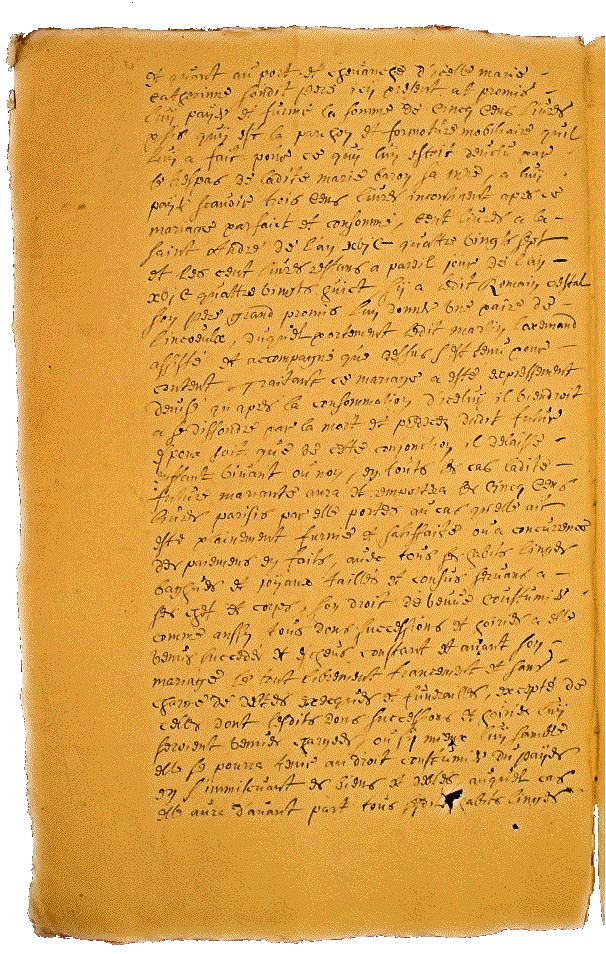 Et quant au port et chevanche d'icelle marie
Catherinne sondit pere icy present at promis
luy payer et furnir la somme de Cincq Cens livres
psis quy est la parchon et formoture mobiliaire quil
luy a fait pour ce quy luy estoit deuche par
le trespas de ladite marie baron sa mere, a luy
payer scavoir trois Cens livres incontinent apres ce
mariage parfaict et consommé, Cent livres a la
saint Andre de l'an xvi C quattre vingts sept
et les cent livres restans a pareil jour de l'an
xvi C quattre vingts huict Sy a ledit Romain
son pere grand promis luy donner une paire de
linceulx, duquel portement ledit martin
assisté et accompagné que dessus s'est tenu pour
content, Traitant ce mariage a esté expressement
devisé qu'apres la consommation d'iceluy il viendroit
a se dissoudre par la mort et predeces dudit futur
epoux soit que de cette conjonction il delaisse
enffant vivant ou non, en touts les cas ladite
future mariante aura et emportera les Cincq Cens
livres parisis par elle portés au cas qu'elle ait
esté plainement furnie et satisfaite ou a concurrence
des paiemens en faits, avec tous ses habits linges
bagues et joyaux taillés et cousus servans a
ses chef et corps, son droit de veuve coustumier
comme aussy tous dons successions et hoiries a elle
venus succedés et escheus constant et avant son
mariage le tout librement francement et sans
charge de dettes obsecques et funerailles, excepté de
celles dont lesdits dons successions et hoiries luy
seroient venues chargees, ou sy mieux luy samble
elle se poura tenir au droit coustumier du payes
en s'immiscuant es biens et debtes, auquel cas
elle aura d'avant part tous sesdits habits linges